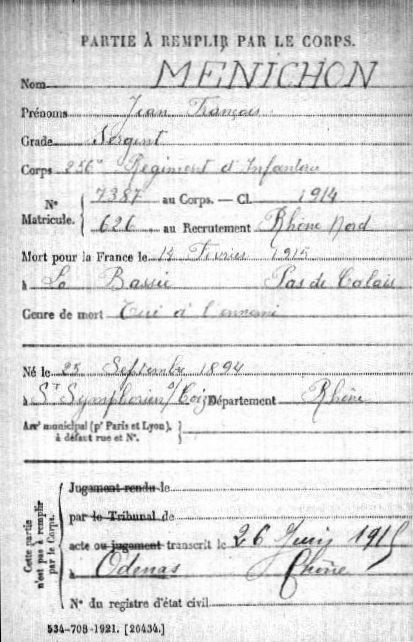 PARTIE À REMPLIR PAR LE CORPS.
Nom MENICHON
Prénoms Jean François
Grade Sergent
Corps 256e Régiment d'Infanterie
N° Matricule. { 7387 au Corps. — Cl. 1914
626 au Recrutement Rhône Nord
Mort pour la France le 14 Février 1915
à La Bassée Pas de Calais
Genre de mort Tué à l'ennemi
Né le 25 Septembre 1894
à St Symphorien s/ Coize Département Rhône
Arrt municipal (pr Paris et Lyon), à défaut rue et N°. }
Cette partie n'est pas à remplir par le Corps.
Jugement rendu le
par le Tribunal de
acte ou jugement transcrit le 26 Juin 1915
à Odenas Rhône
N° du registre d'état civil
534-708-1921. [26434.]